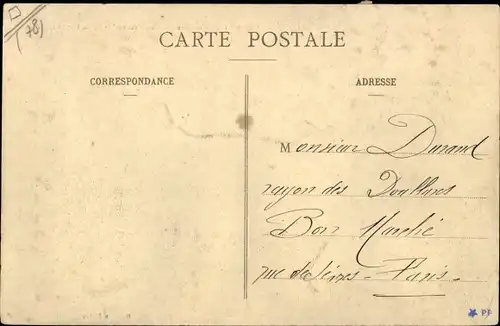 (78)
CARTE POSTALE
CORRESPONDANCE
ADRESSE
Monsieur Durand
rayon des Doublures
Bon Marché
rue de Sèvres - Paris -
PF